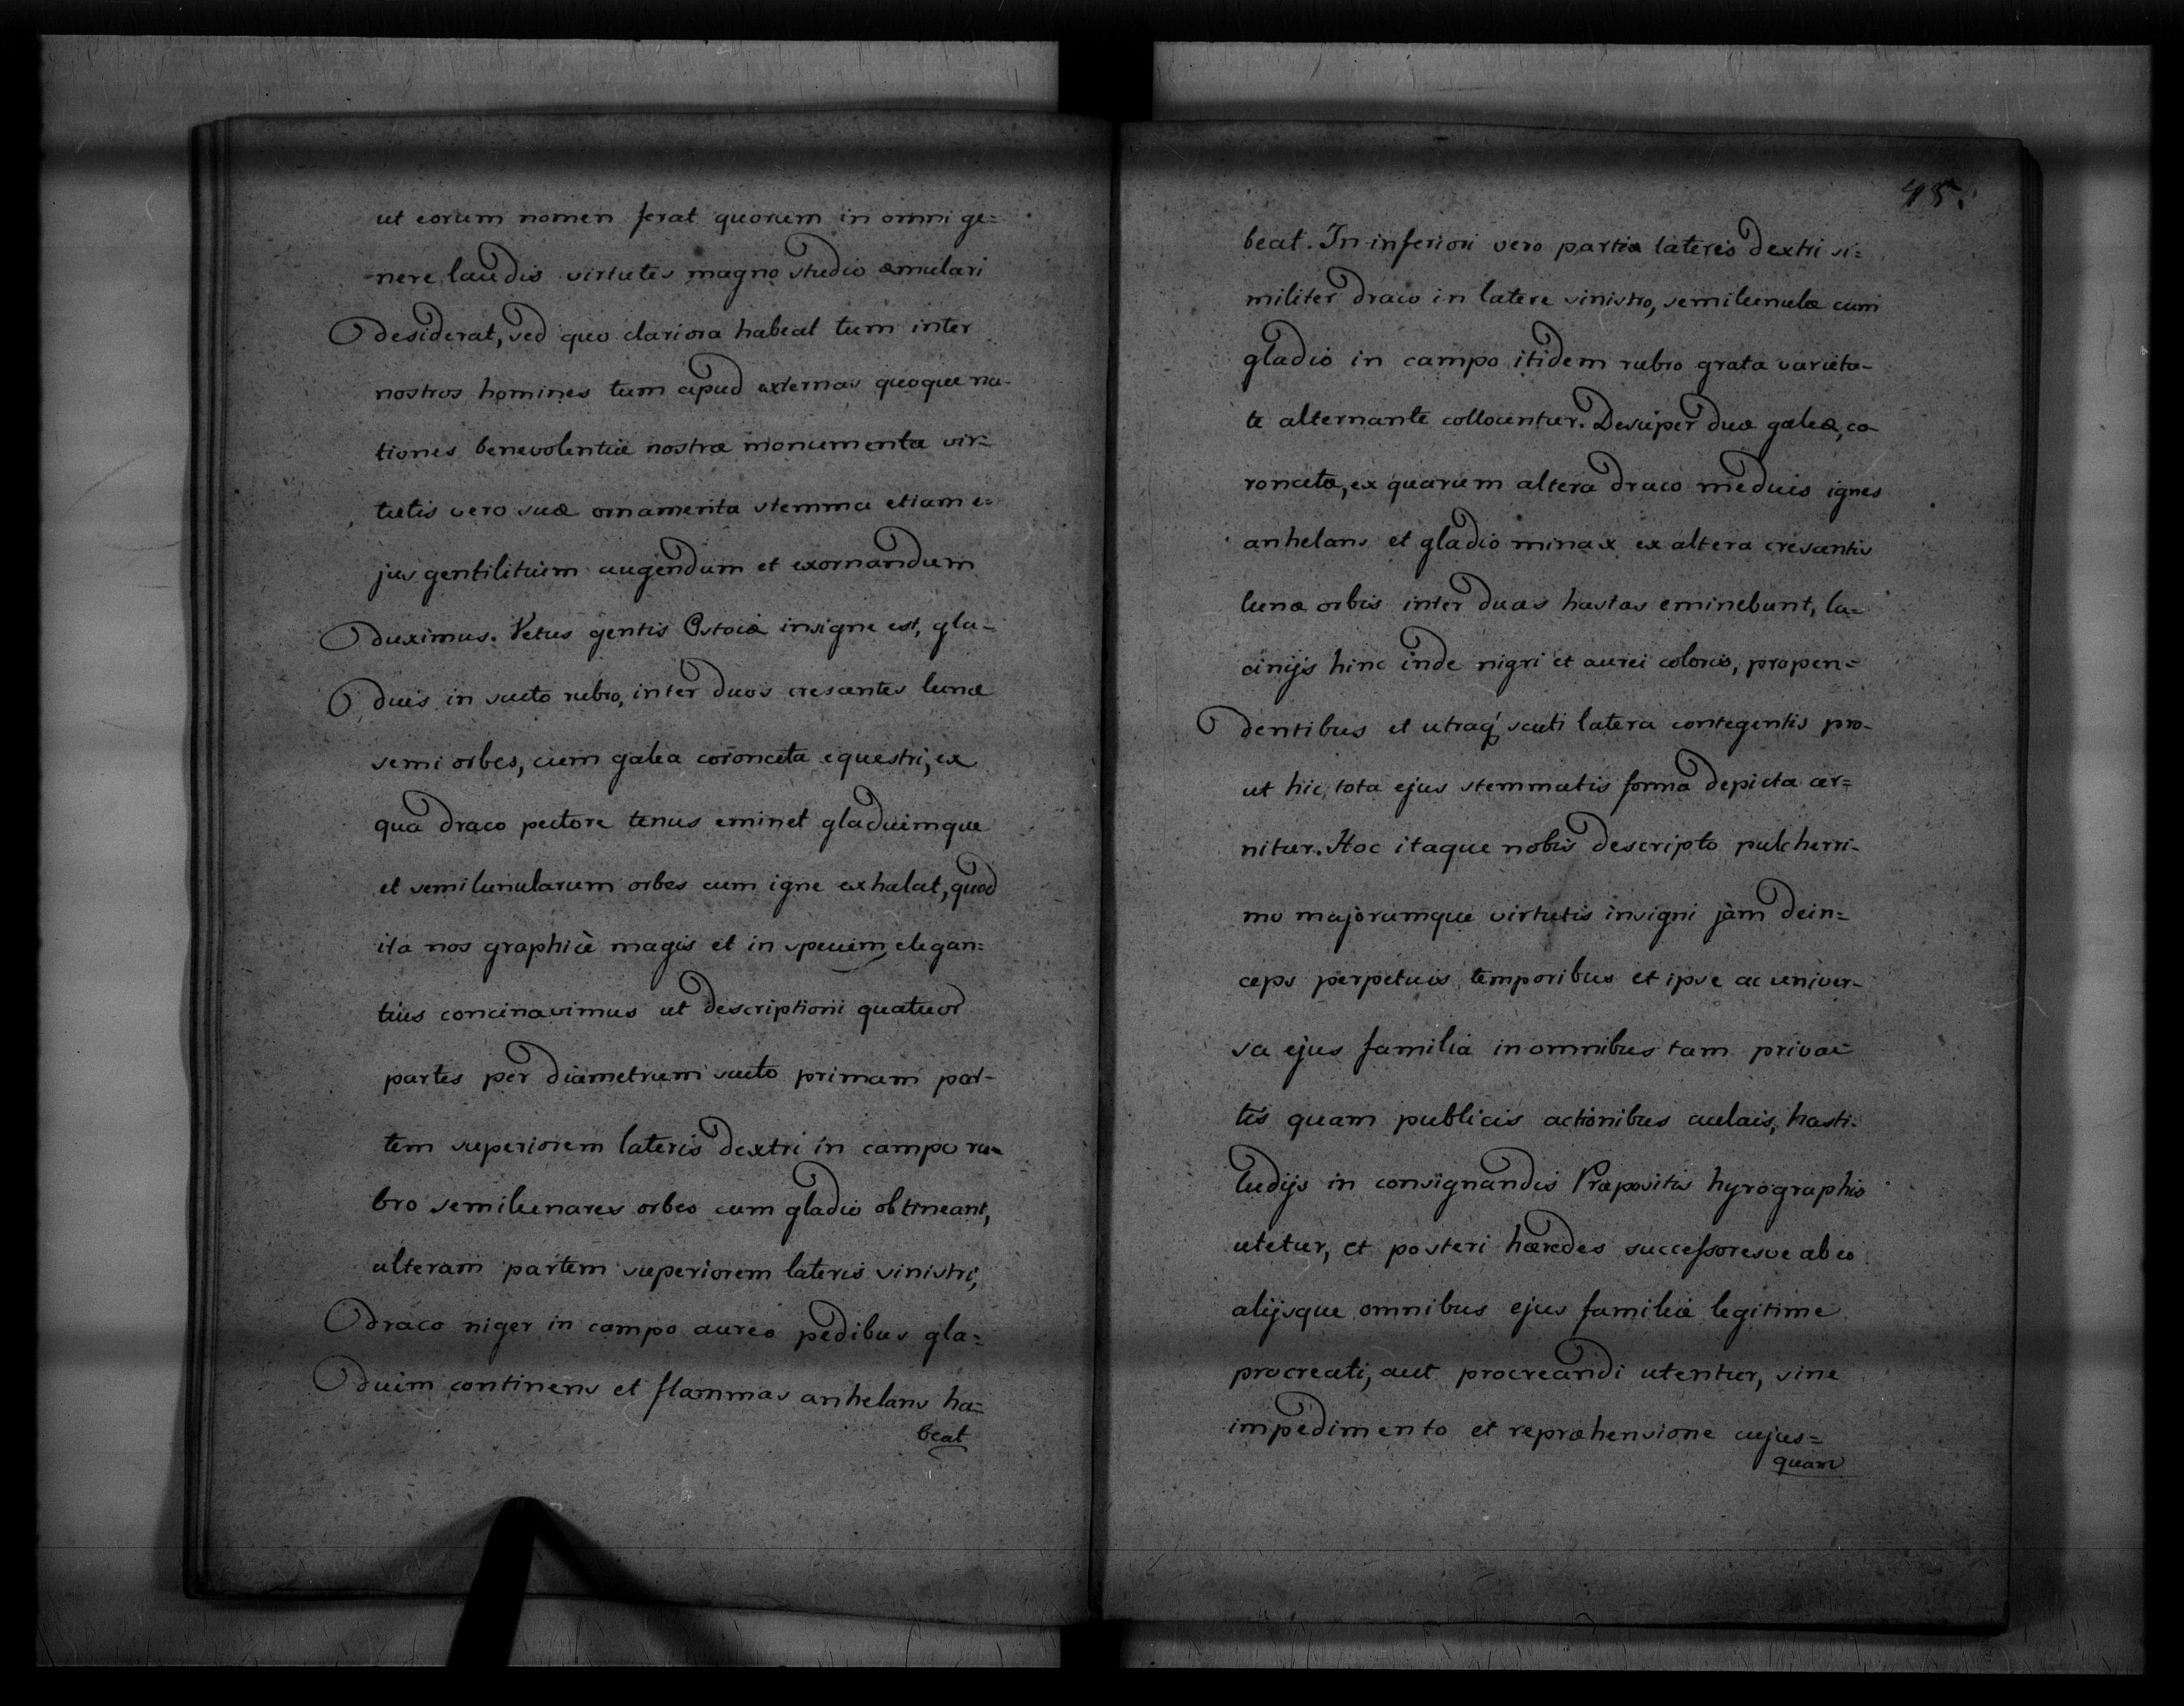 ut eorum nomen ferat quorum in omni ge=
nere laudis virtutes magno studio æmulari
desiderat, sed quo clariora habeat tum inter
nostros homines tum apud externas quoque na-
tiones benevolentiæ nostræ monumenta vir=
tutis vero suæ ornamenta stemma etiam e=
jus gentilitium augendum et exornandum
duximus. Vetus gentis Ostoiæ insigne est, gla-
dius in scuto rubro, inter duos crescentes lunæ
semi orbes, cum galea coronata equestri, ex
qua draco pectore tenus eminet gladiumque
et semilunularum orbes cum igne exhalat, quod
ita nos graphicè magis et in speciem elegan=
tius concinavimus ut descriptioni quatuor
partes per diametrum scuto primam par-
tem superiorem lateris dextri in campo ru=
bro semilunares orbes cum gladio obtineant,
alteram partem superiorem lateris sinistri,
draco niger in campo aureo pedibus gla=
dium continens et flammas anhelans ha=
beat
48.
beat. In inferiori vero partiæ lateris dextri si=
militer draco in latere sinistro, semilunulæ cum
gladio in campo itidem rubro grata varieta-
te alternante collocentur. Desuper duæ galeæ, co-
ronatæ, ex quarum altera draco medius ignes
anhelans et gladio minax ex altera crescentis
lunæ orbis inter duas hastas eminebunt, la=
cinijs hinc inde nigri et aurei coloris, propen=
dentibus et utraq́ scuti latera contegentis pro-
ut hic, tota ejus stemmatis forma depicta cer=
nitur. Hoc itaque nobis descripto pulcherri-
mo majorumque virtutis insigni jàm dein=
ceps perpetuis temporibus et ipse ac univer-
sa ejus familia in omnibus tam priva=
tis quam publicis actionibus aulais, hasti=
ludijs in consignandis Præpositis hyrographis
utetur, et posteri hæredes successoresve ab eo
alijsque omnibus ejus familiæ legitime
procreati, aut procreandi utentur, sine
impedimento et repræhensione cujus=
quam